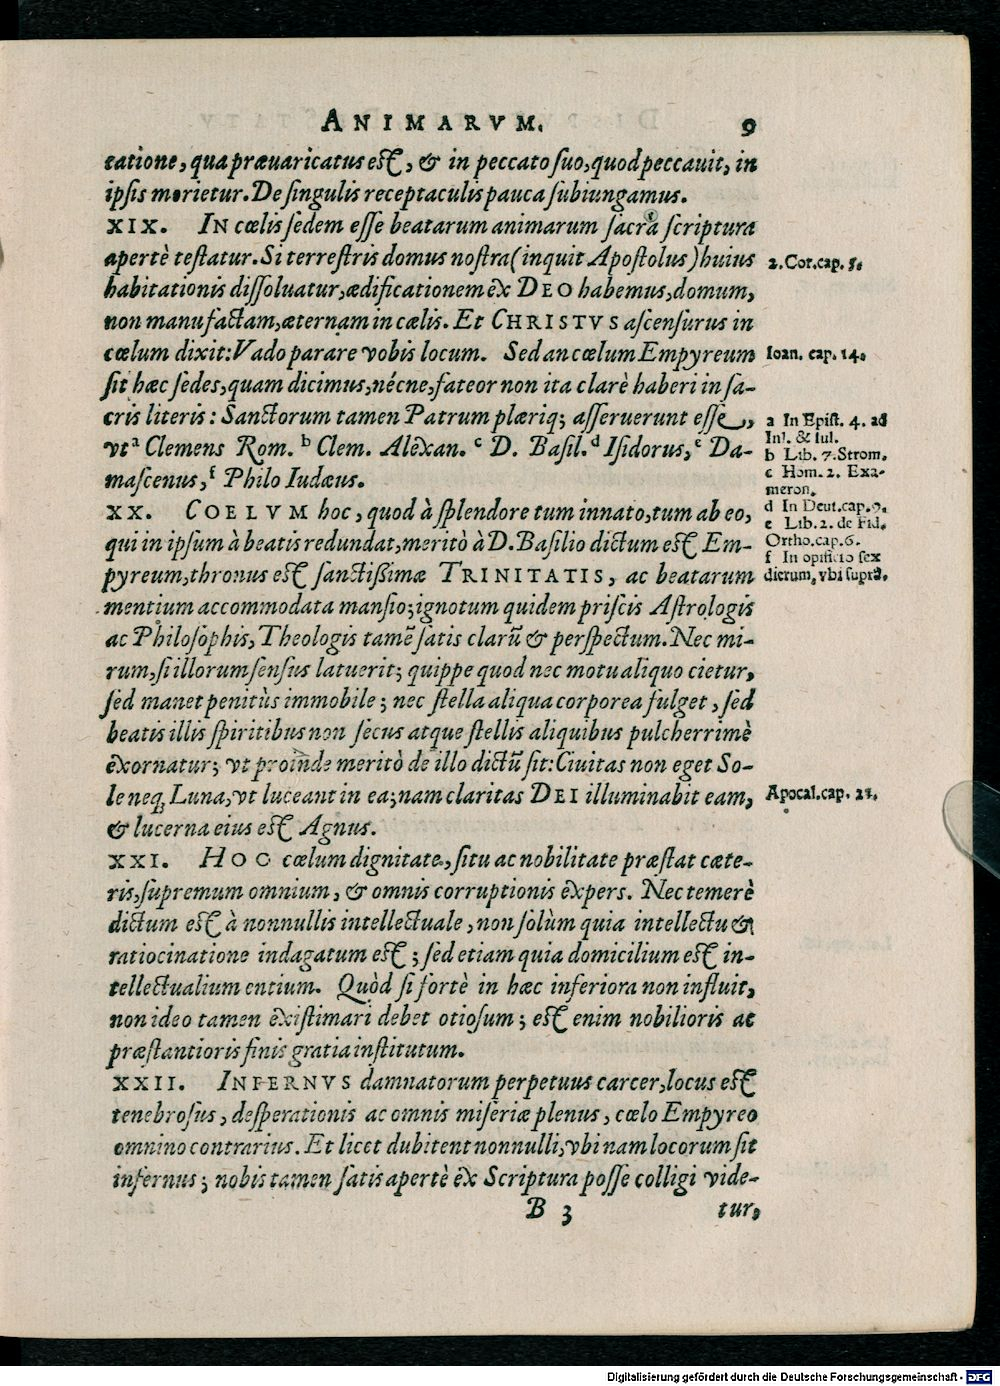 ANIMARVM. 9
catione, qua præuaricatus est, & in peccato suo, quod peccauit, in
ipsis morietur. De singulis receptaculis pauca subiungamus.
XIX. IN cœlis sedem esse beatarum animarum sacra scriptura
apertè testatur. Si terrestris domus nostra (inquit Apostolus) huius
2. Cor. cap. 5.
habitationis dissoluatur, ædificationem èx DEO habemus, domum,
non manufactam, æternam in cœlis. Et CHRISTVS ascensurus in
cœlum dixit: Vado parare vobis locum. Sed an cœlum Empyreum
Ioan. cap. 14.
sit hæc sedes, quam dicimus, nécne, fateor non ita clarè haberi in sa-
cris literis: Sanctorum tamen Patrum plæriq; asseruerunt esse,
vt a Clemens Rom. b Clem. Alexan. c D. Basil. d Isidorus, e Da-
mascenus, f Philo Iudæus.
a In Epist. 4. ad
Iul. & Iul.
b Lib. 7. Strom.
c Hom. 2. Exa-
meron.
d In Deut. cap. 9.
e Lib. 2. de Fid.
Ortho. cap. 6.
f In opificio sex
dierum, vbi suprà.
XX. COELVM hoc, quod à splendore tum innato, tum ab eo,
qui in ipsum à beatis redundat, meritò à D. Basilio dictum est Em-
pyreum, thronus est sanctissimæ TRINITATIS, ac beatarum
mentium accommodata mansio; ignotum quidem priscis Astrologis
ac Philosophis, Theologis tamẽ satis clarũ & perspectum. Nec mi-
rum, si illorum sensus latuerit; quippe quod nec motu aliquo cietur,
sed manet penitùs immobile; nec stella aliqua corporea fulget, sed
beatis illis spiritibus non secus atque stellis aliquibus pulcherrimè
èxornatur; vt proinde meritò de illo dictũ sit: Ciuitas non eget So-
le neq; Luna, vt luceant in ea; nam claritas DEI illuminabit eam,
Apocal. cap. 21.
& lucerna eius est Agnus.
XXI. HOC cœlum dignitate, situ ac nobilitate præstat cæte-
ris, supremum omnium, & omnis corruptionis èxpers. Nec temerè
dictum est à nonnullis intellectuale, non solùm quia intellectu &
ratiocinatione indagatum est; sed etiam quia domicilium est in-
tellectualium entium. Quòd si fortè in hæc inferiora non influit,
non ideo tamen èxistimari debet otiosum; est enim nobilioris ac
præstantioris finis gratia institutum.
XXII. INFERNVS damnatorum perpetuus carcer, locus est
tenebrosus, desperationis ac omnis miseriæ plenus, cœlo Empyreo
omnino contrarius. Et licet dubitent nonnulli, vbi nam locorum sit
infernus; nobis tamen satis apertè èx Scriptura posse colligi vide-
B 3 tur,
Digitalisierung gefördert durch die Deutsche Forschungsgemeinschaft - DFG